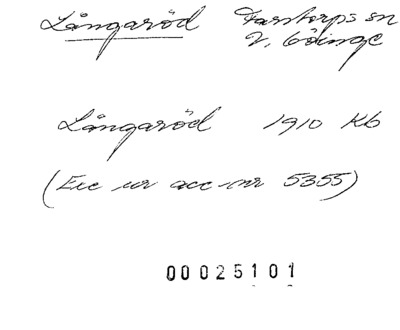 Långaröd Farstorps sn
V. Göinge
Långaröd 1910 Kb
(Exc ur acc-nr 5355)
00025101